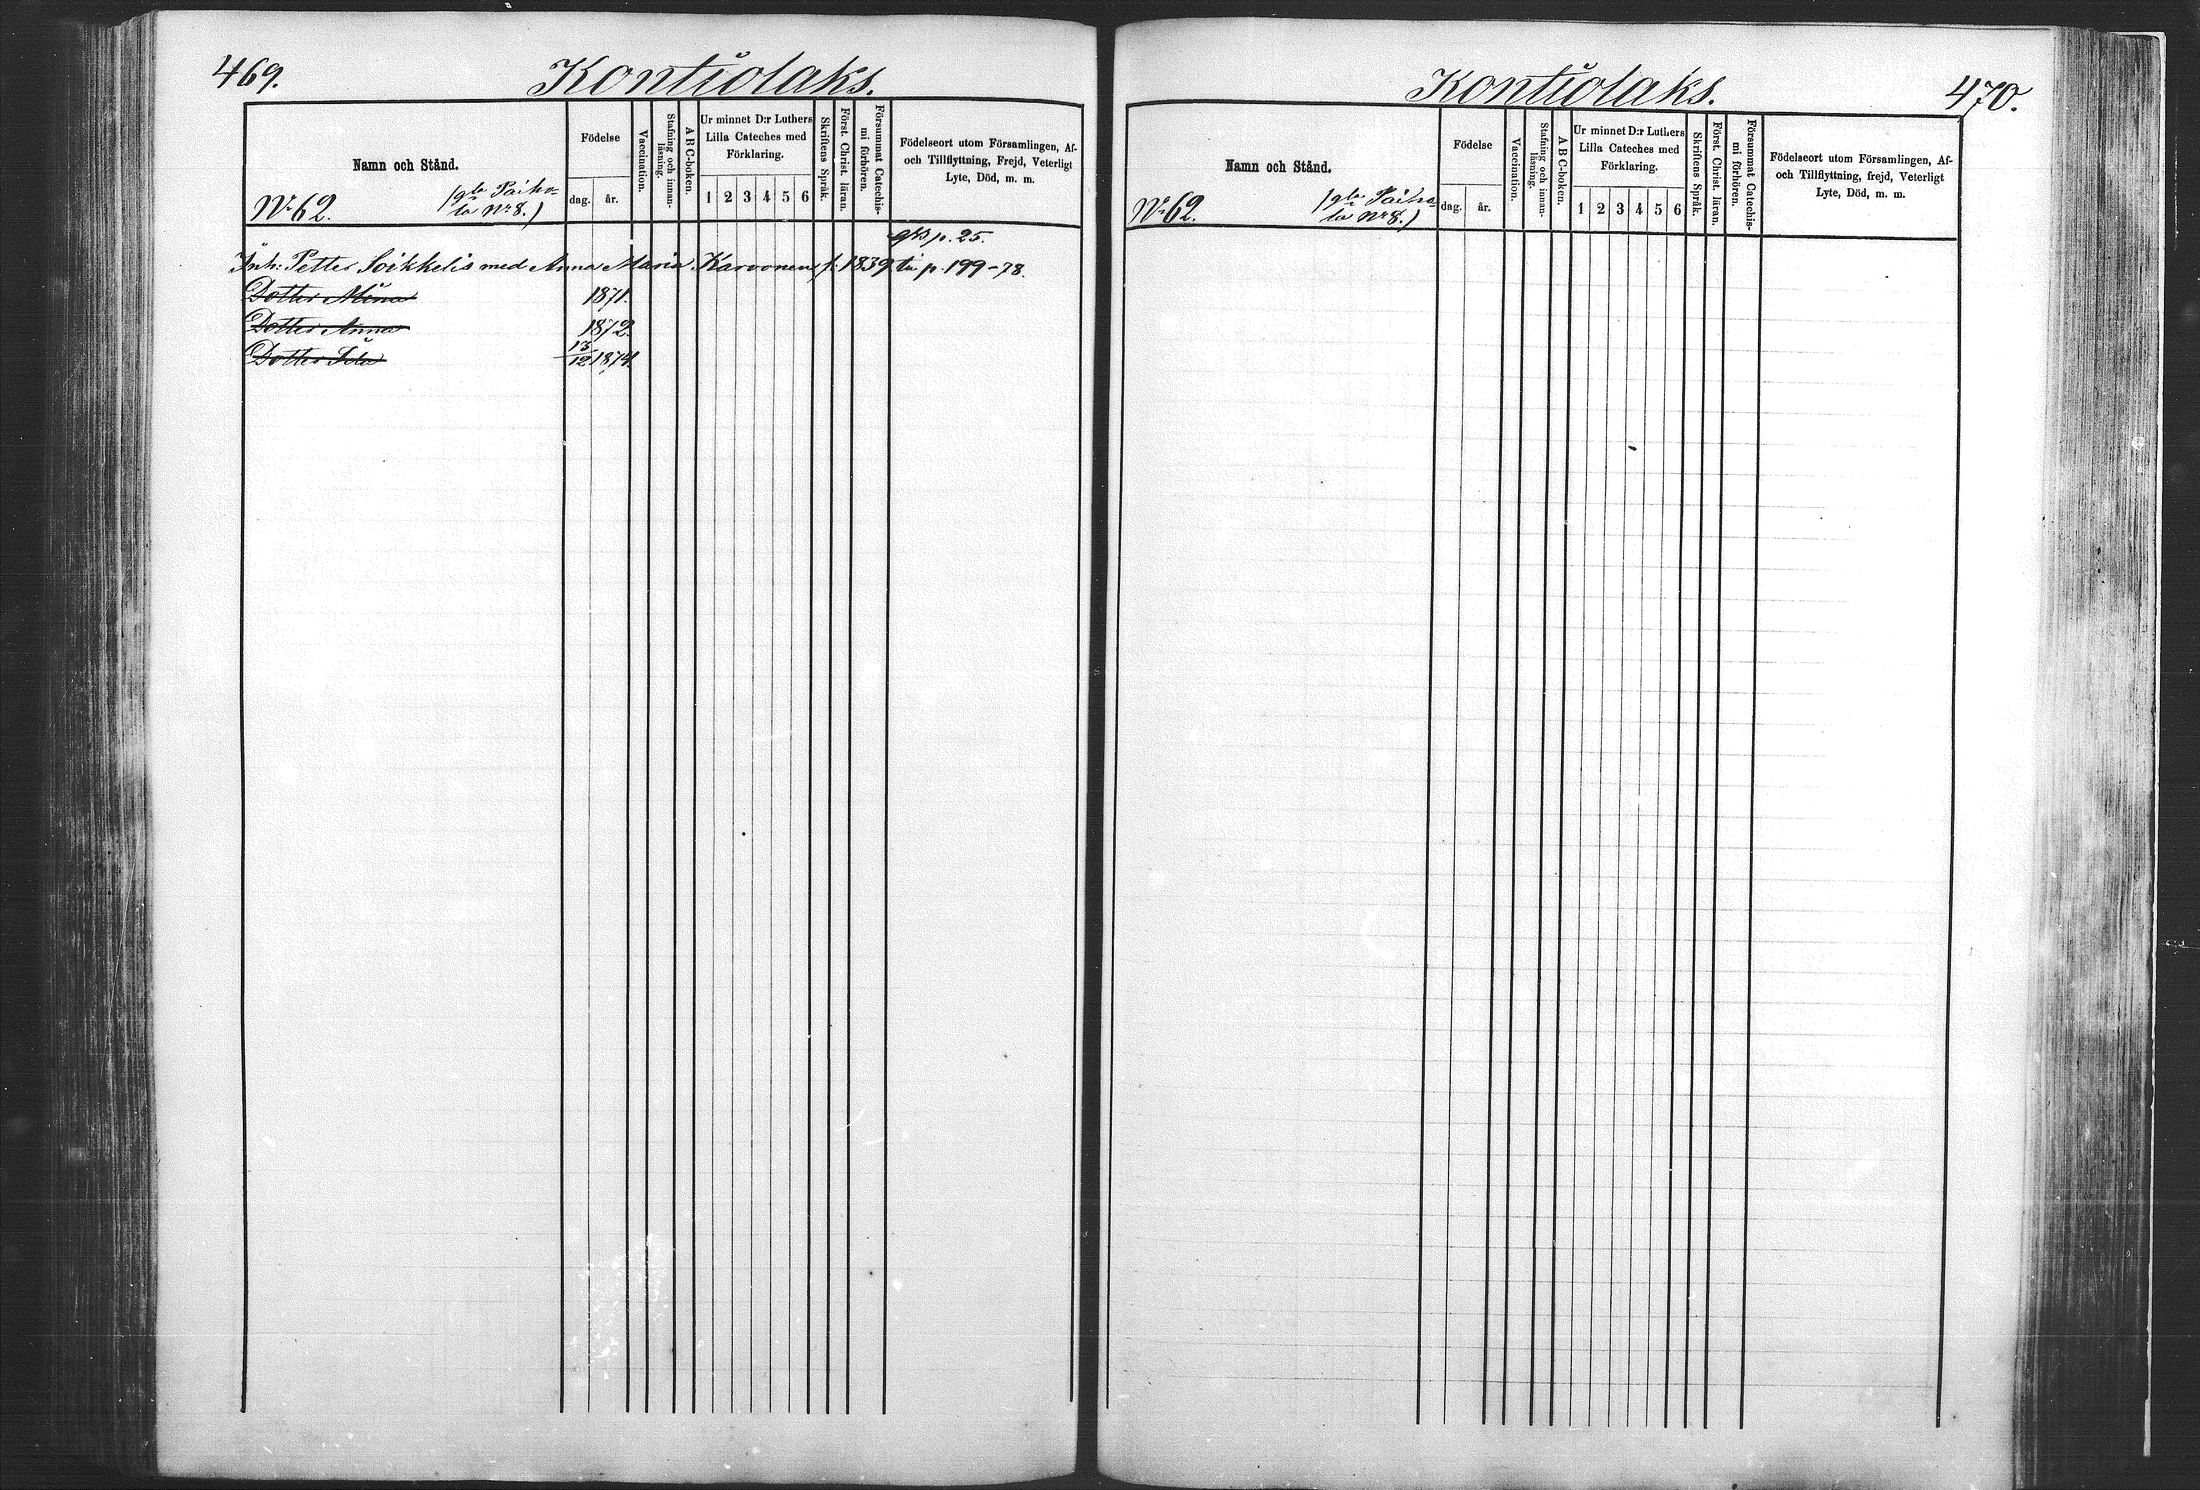 469.
Kontiolaks.
Namn och Stånd.
Födelse
dag.
år.
Vaccination.
Stafning och innan-
läsning.
A B C-boken.
Ur minnet D:r Luthers
Lilla Cateches med
Förklaring.
1 2 3 4 5 6
Skriftens Språk.
Först. Christ. läran.
Försummat Catechis-
mi förhören.
Födelseort utom Församlingen, Af-
och Tillflyttning, Frejd, Veterligt
Lyte, Död, m. m.
No 62.
(gla Paiho-
la No 8.)
p. 25.
Inh: Petter Soikkelis med Anna Maria Karvonen f. 1839 p. 199-78.
Dotter Mina 1871.
Dotter Anna 1872.
Dotter Ida 13/12 1874.
Kontiolaks.
470.
Namn och Stånd.
Födelse
dag.
år.
Vaccination.
Stafning och innan-
läsning.
A B C-boken.
Ur minnet D:r Luthers
Lilla Cateches med
Förklaring.
1 2 3 4 5 6
Skriftens Språk.
Först. Christ. läran.
Försummat Catechis-
mi förhören.
Födelseort utom Församlingen, Af-
och Tillflyttning, frejd, Veterligt
Lyte, Död, m. m.
No 62.
(gla Paiho-
la No 8.)